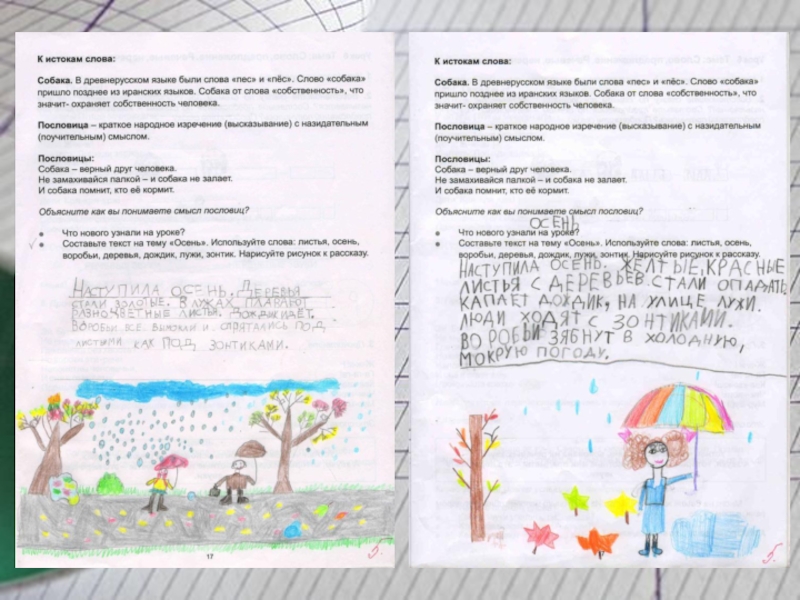 К истокам слова:
Собака. В древнерусском языке были слова «пес» и «пёс». Слово «собака»
пришло позднее из иранских языков. Собака от слова «собственность», что
значит- охраняет собственность человека.
Пословица – краткое народное изречение (высказывание) с назидательным
(поучительным) смыслом.
Пословицы:
Собака – верный друг человека.
Не замахивайся палкой – и собака не залает.
И собака помнит, кто её кормит.
Объясните как вы понимаете смысл пословиц?
Что нового узнали на уроке?
Составьте текст на тему «Осень». Используйте слова: листья, осень,
воробьи, деревья, дождик, лужи, зонтик. Нарисуйте рисунок к рассказу.
НАСТУПИЛА ОСЕНЬ. ДЕРЕВЬЯ
СТАЛИ ЗОЛОТЫЕ. В ЛУЖАХ ПЛАВАЮТ
РАЗНОЦВЕТНЫЕ ЛИСТЬЯ. ДОЖДИК ИДЁТ.
ВОРОБЬИ ВСЕ И СПРЯТАЛИСЬ ПОД
ЛИСТИКИ КАК ПОД ЗОНТИКАМИ.
17
5.
К истокам слова:
Собака. В древнерусском языке были слова «пес» и «пёс». Слово «собака»
пришло позднее из иранских языков. Собака от слова «собственность», что
значит- охраняет собственность человека.
Пословица – краткое народное изречение (высказывание) с назидательным
(поучительным) смыслом.
Пословицы:
Собака – верный друг человека.
Не замахивайся палкой – и собака не залает.
И собака помнит, кто её кормит.
Объясните как вы понимаете смысл пословиц?
ОСЕНЬ
Что нового узнали на уроке?
Составьте текст на тему «Осень». Используйте слова: листья, осень,
воробьи, деревья, дождик, лужи, зонтик. Нарисуйте рисунок к рассказу.
НАСТУПИЛА ОСЕНЬ. ЖЕЛТЫЕ, КРАСНЫЕ
ЛИСТЬЯ С ДЕРЕВЬЕВ СТАЛИ ОПАДАТЬ
КАПАЕТ ДОЖДИК, НА УЛИЦЕ ЛУЖИ.
ЛЮДИ ХОДЯТ С ЗОНТИКАМИ.
ВОРОБЬИ ЗЯБНУТ В ХОЛОДНУЮ,
МОКРУЮ ПОГОДУ.
5.